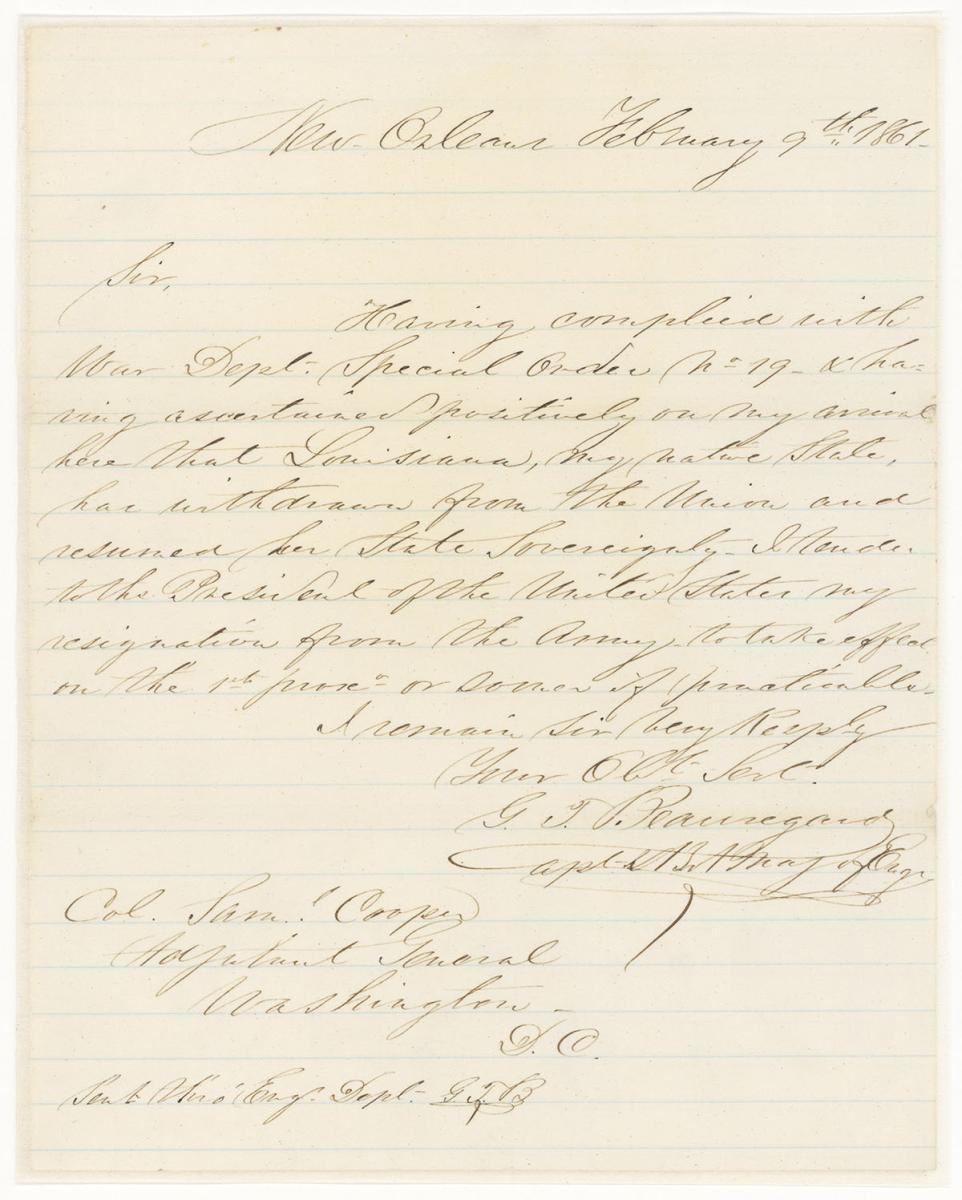 New Orleans February 9th 1861-
Sir,
Having complied with
War Dept. Special Order No 19- & ha=
ving ascertained positively on my arrival
here that Louisiana, my native State,
has withdrawn from the Union and
resumed her State Sovereignty- I tender
to the President of the United States my
resignation from the Army- to take effect
on the 1st proxo or sooner if practicable-
I remain Sir Very Resply
Your Obt Servt.
G. T. Beauregard
Capt & Bvt Maj of Engr
Col. Saml. Cooper
Adjutant General
Washington-
D. C.
Sent thro' Eng. Dept. G. T. B